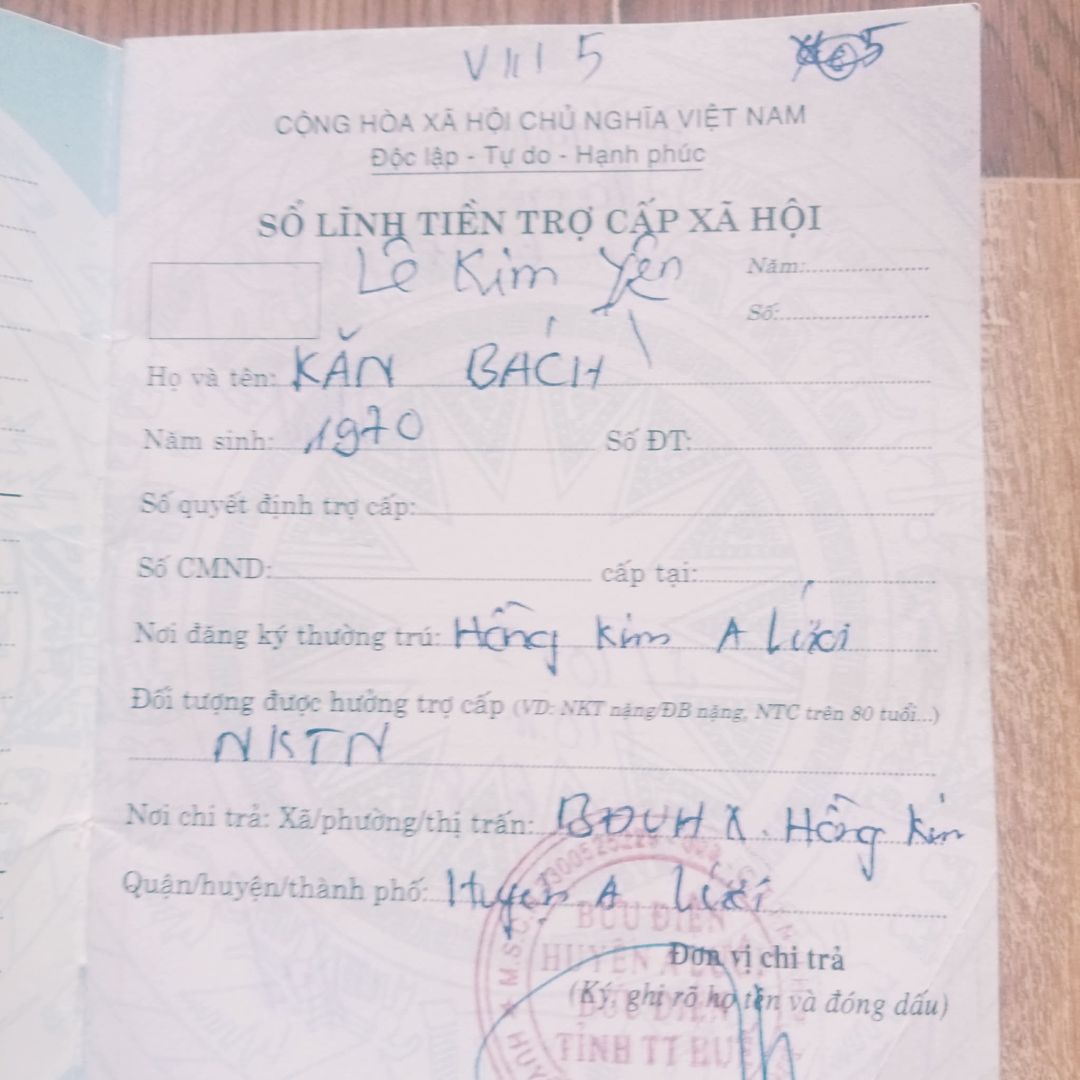 VIII 5
5
CỘNG HÒA XÃ HỘI CHỦ NGHĨA VIỆT NAM
Độc lập - Tự do - Hạnh phúc
SỔ LĨNH TIỀN TRỢ CẤP XÃ HỘI
Lê Kim Yên
Năm:
Số:
Họ và tên: KĂN BÁCH
Năm sinh: 1970 Số ĐT:
Số quyết định trợ cấp:
Số CMND: cấp tại:
Nơi đăng ký thường trú: Hồng Kim A Lưới
Đối tượng được hưởng trợ cấp (VD: NKT nặng/ĐB nặng, NTC trên 80 tuổi...)
NKTN
Nơi chi trả: Xã/phường/thị trấn: BĐVH X. Hồng Kim
Quận/huyện/thành phố: Huyện A Lưới
BƯU ĐIỆN
HUYỆN
Đơn vị chi trả
(Ký, ghi rõ họ tên và đóng dấu)
BƯU ĐIỆN
TỈNH TT HUẾ